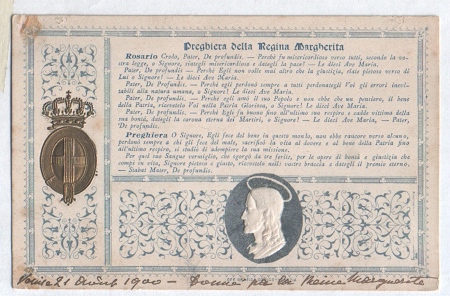 Preghiera della Regina Margherita
Rosario Credo, Pater, De profundis. — Perchè fu misericordioso verso tutti, secondo la vo-
stra legge, o Signore, siategli misericordioso e dategli la pace! — Le dieci Ave Maria.
Pater, De profundis. — Perchè Egli non volle mai altro che la giustizia, siate pietoso verso di
Lui o Signore! — Le dieci Ave Maria.
Pater, De profundis. — Perchè egli perdonò sempre a tutti perdonategli Voi gli errori inevi-
tabili alla natura umana, o Signore! — Le dieci Ave Maria.
Pater, De profundis. — Perchè egli amò il suo Popolo e non ebbe che un pensiero, il bene
della Patria, ricevetelo Voi nella Patria Gloriosa, o Signore! Le dieci Ave Maria.
Pater, De profundis. — Perchè Egli fu buono fino all'ultimo suo respiro e cadde vittima della
sua bontà, dategli la corona eterna dei Martiri, o Signore! — Le dieci Ave Maria. — Pater,
De profundis.
Preghiera O Signore, Egli fece del bene in questo mondo, non ebbe rancore verso alcuno,
perdonò sempre a chi gli fece del male, sacrificò la vita al dovere e al bene della Patria fino
all'ultimo respiro, si studiò di adempiere la sua missione.
Per quel suo Sangue vermiglio, che sgorgò da tre ferite, per le opere di bontà e giustizia che
compì in vita, Signore pietoso e giusto, ricevetelo nelle vostre braccia e dategli il premio eterno.
— Stabat Mater, De profundis.
21 Août 1900 — Donné par la Reine Marguerite